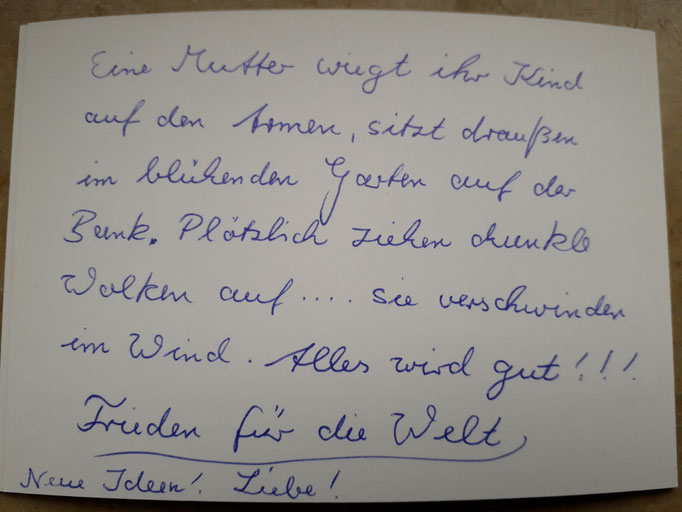 Eine Mutter wiegt ihr Kind
auf den Armen, sitzt draußen
im blühenden Garten auf der
Bank. Plötzlich ziehen dunkle
Wolken auf.... sie verschwinden
im Wind. Alles wird gut!!!
Frieden für die Welt
Neue Ideen! Liebe!